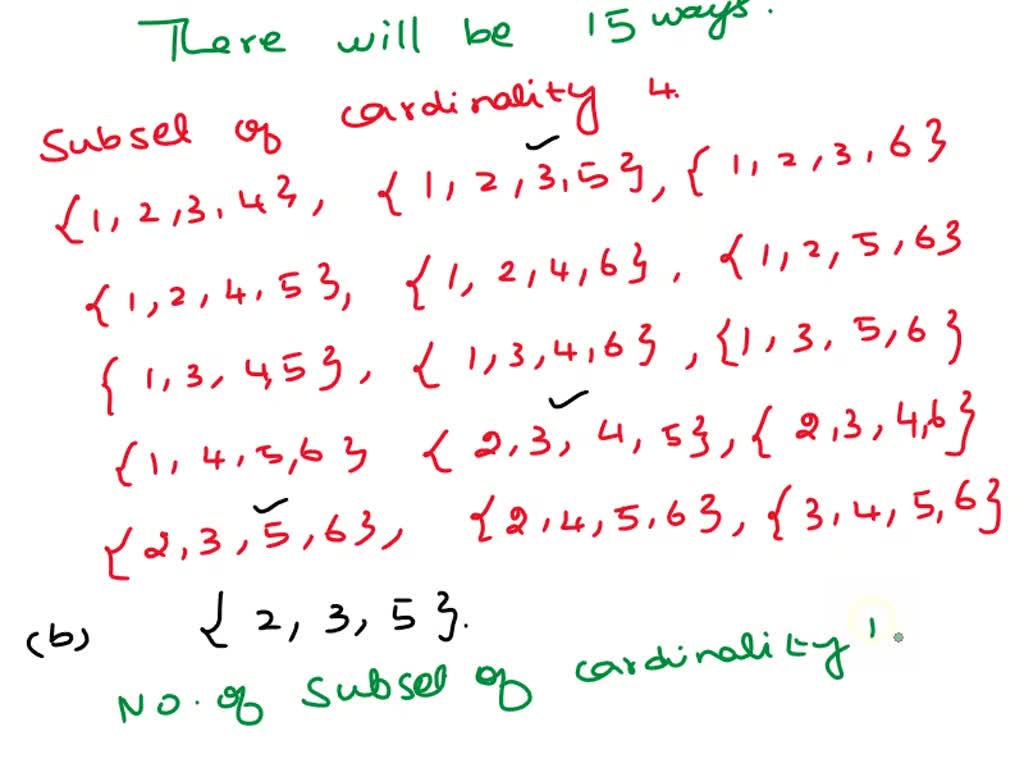 There will be 15 ways.
Subsel of cardinality 4.
{1, 2, 3, 4}, {1, 2, 3, 5}, {1, 2, 3, 6}
{1, 2, 4, 5}, {1, 2, 4, 6}, {1, 2, 5, 6}
{1, 3, 4, 5}, {1, 3, 4, 6}, {1, 3, 5, 6}
{1, 4, 5, 6} {2, 3, 4, 5}, {2, 3, 4, 6}
{2, 3, 5, 6}, {2, 4, 5, 6}, {3, 4, 5, 6}
(b) {2, 3, 5}.
No. of subsel of cardinality 1